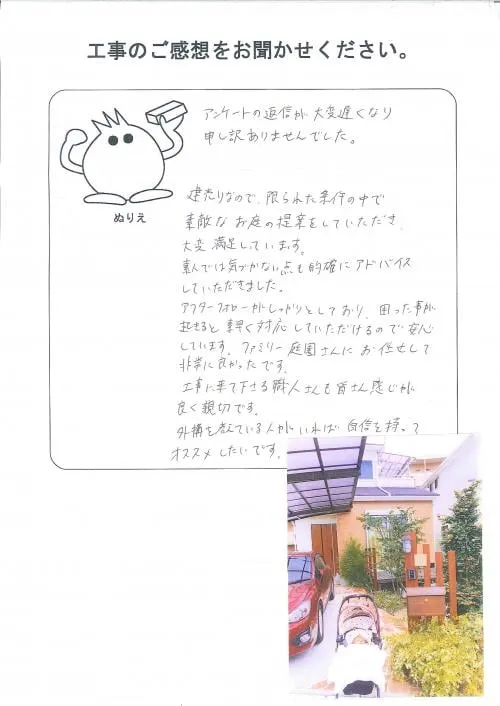 工事のご感想をお聞かせください。
アンケートの返信が大変遅くなり
申し訳ありませんでした。
ぬりえ
建売りなので、限られた条件の中で
素敵なお庭の提案をしていただき、
大変満足しています。
素人では気づかない点も的確にアドバイス
していただきました。
アフターフォローがしっかりとしており、困った事が
起きると素早く対応していただけるので安心
しています。ファミリー庭園さんにお任せして
非常に良かったです。
工事に来て下さる職人さんも皆さん感じが
良く親切です。
外構を考えている人がいれば自信を持って
オススメしたいです。